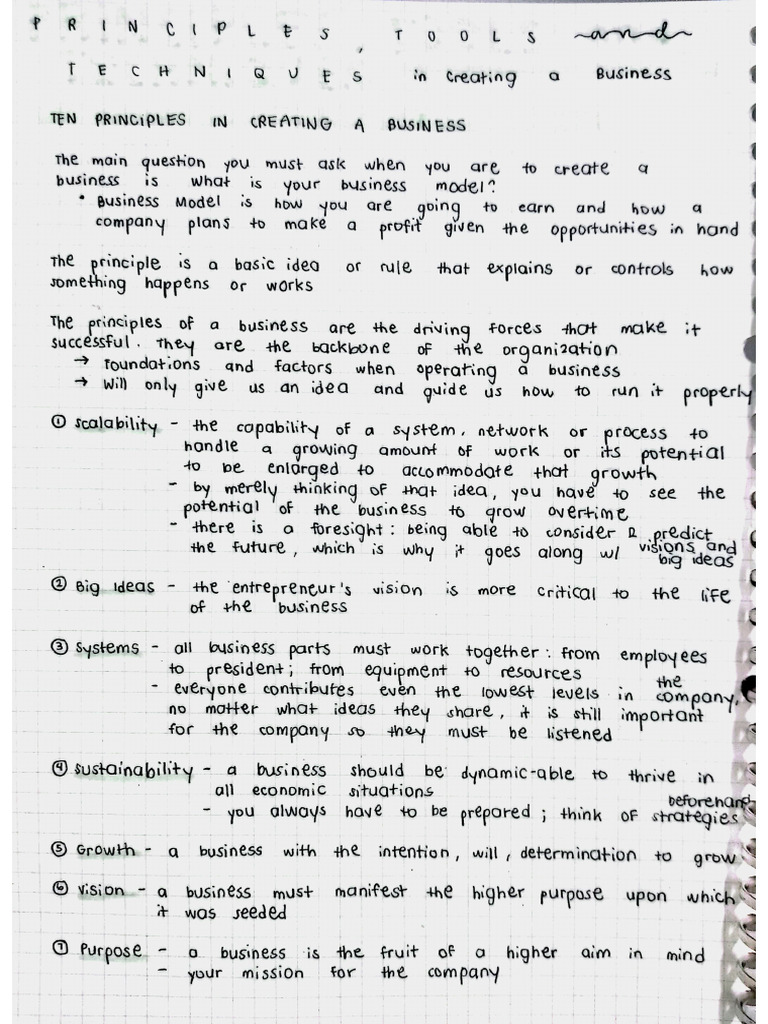 PRINCIPLES, TOOLS and
TECHNIQUES in Creating a Business
TEN PRINCIPLES IN CREATING A BUSINESS
The main question you must ask when you are to create a
business is what is your business model?
• Business Model is how you are going to earn and how a
company plans to make a profit given the opportunities in hand
The principle is a basic idea or rule that explains or controls how
something happens or works
The principles of a business are the driving forces that make it
successful. They are the backbone of the organization
→ foundations and factors when operating a business
→ will only give us an idea and guide us how to run it properly
① Scalability - the capability of a system, network or process to
handle a growing amount of work or its potential
to be enlarged to accommodate that growth
- by merely thinking of that idea, you have to see the
potential of the business to grow overtime
- there is a foresight: being able to consider & predict
the future, which is why it goes along w/ visions and
big ideas
② Big Ideas - the entrepreneur's vision is more critical to the life
of the business
③ Systems - all business parts must work together: from employees
to president; from equipment to resources
- everyone contributes even the lowest levels in the company,
no matter what ideas they share, it is still important
for the company so they must be listened
④ Sustainability - a business should be dynamic-able to thrive in
all economic situations
- you always have to be prepared; think of strategies beforehand
⑤ Growth - a business with the intention, will, determination to grow
⑥ Vision - a business must manifest the higher purpose upon which
it was seeded
⑦ Purpose - a business is the fruit of a higher aim in mind
- your mission for the company